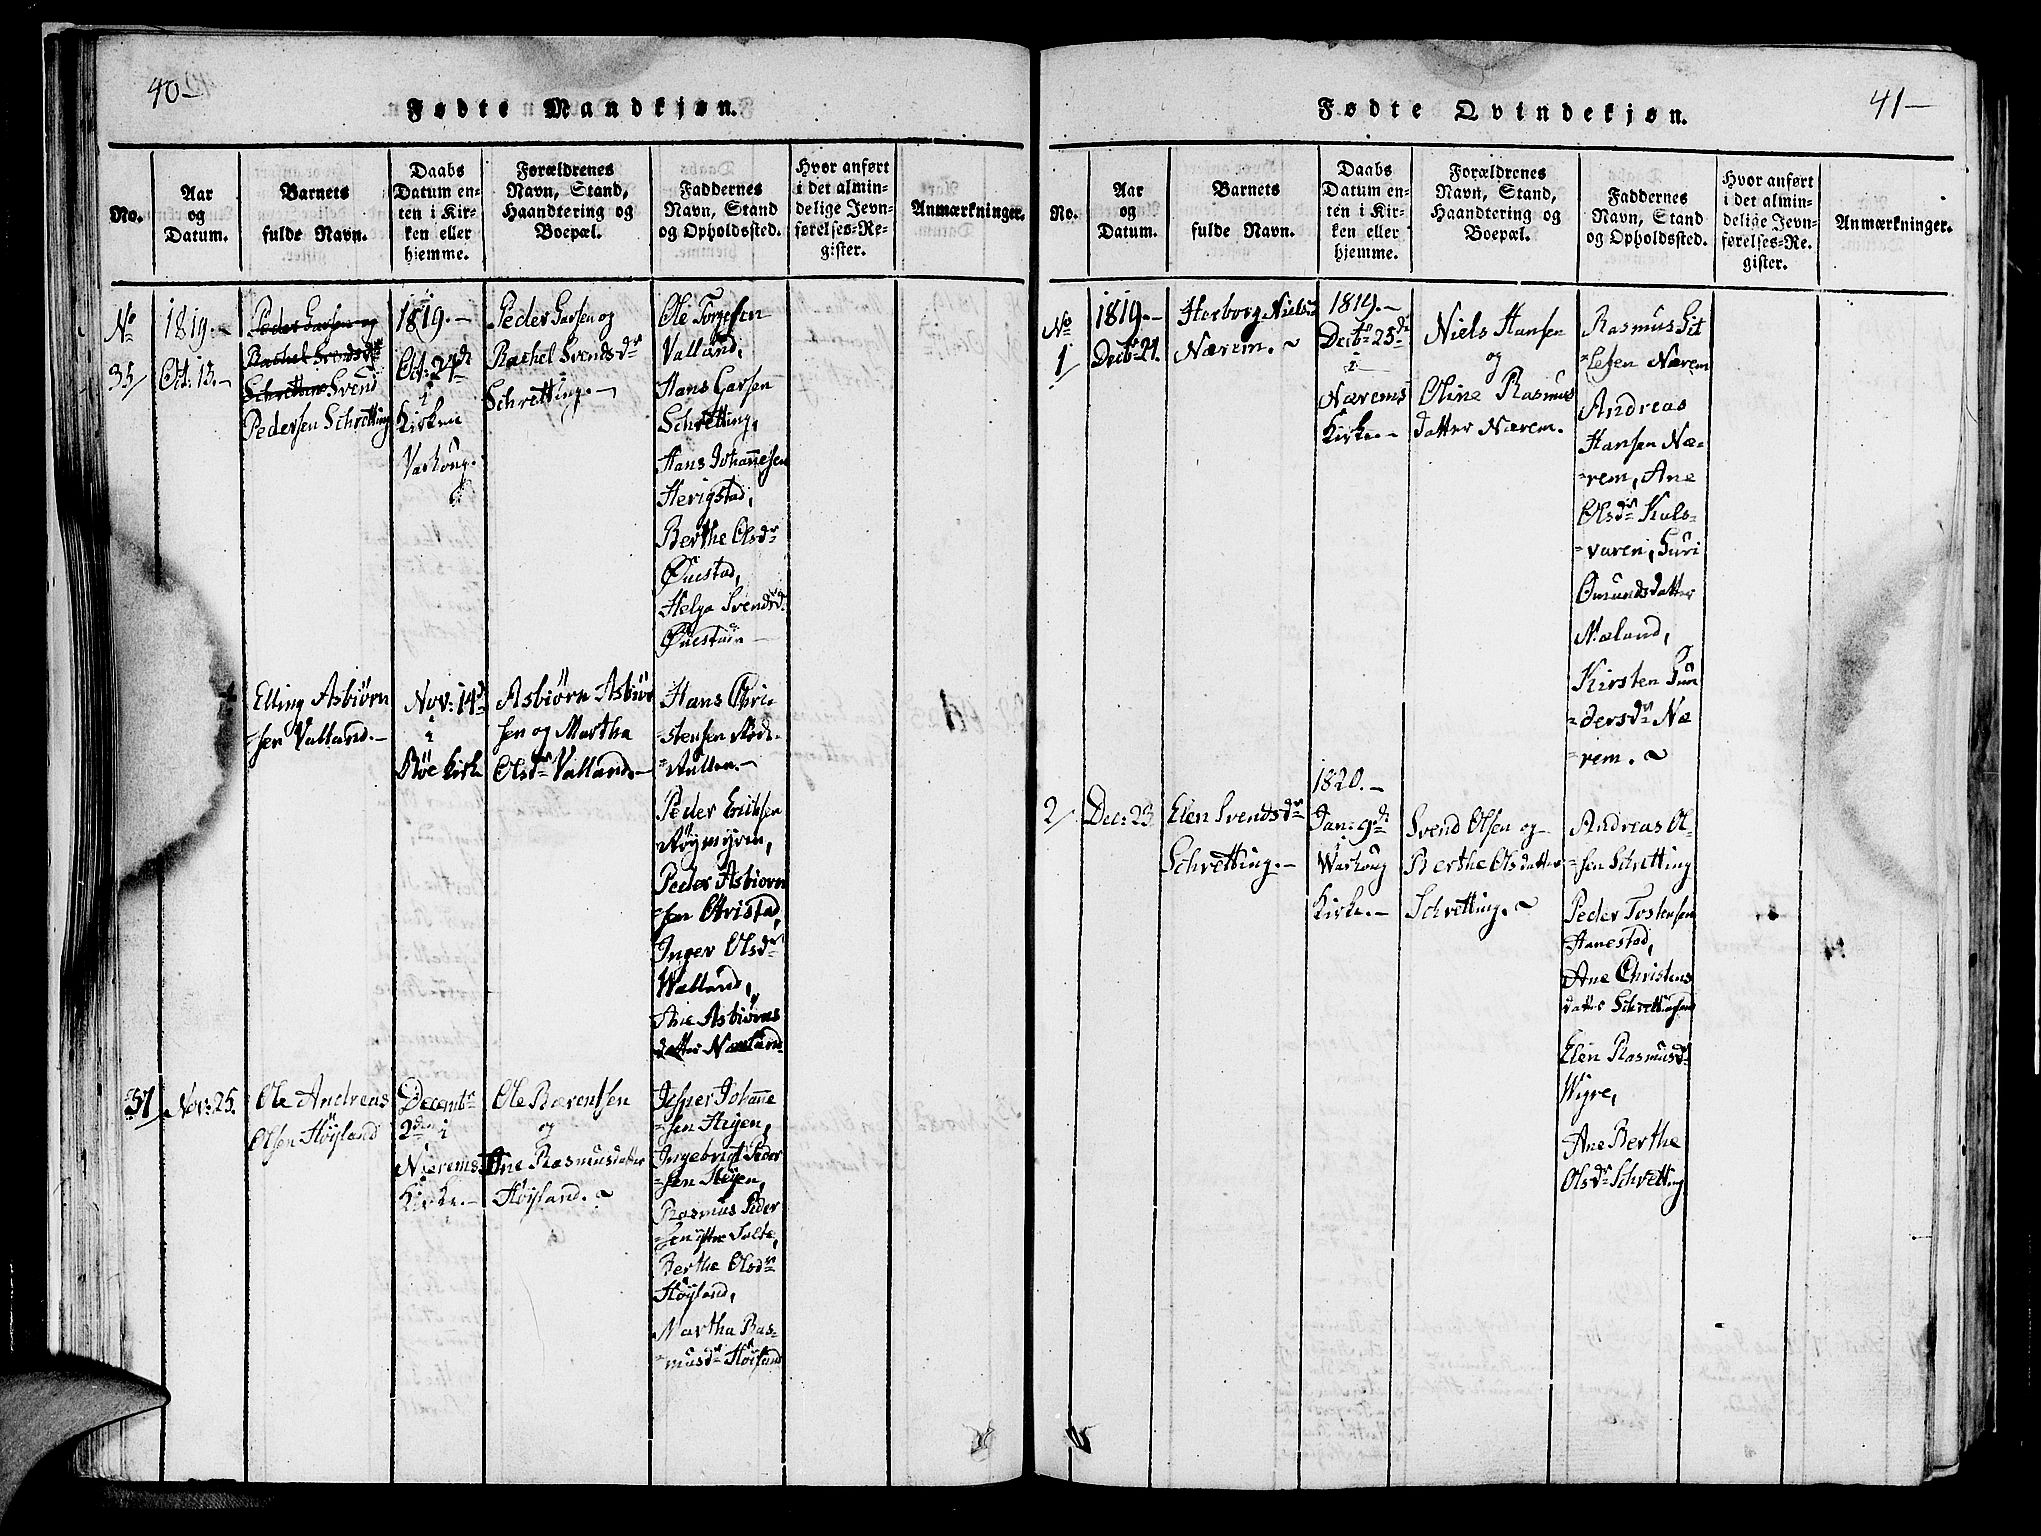 40-
Fødte Mandkjøn.
No.
Aar
og
Datum.
Barnets
fulde Navn.
Daabs
Datum en-
ten i Kir-
ken eller
hjemme.
Forældrenes
Navn, Stand,
Haandtering og
Boepæl.
Faddernes
Navn, Stand
og Opholdssted.
Hvor anført
i det almin-
delige Jevn-
førelses-Re-
gister.
Anmærkninger.
No
35/
1819.-
Oct: 13.-
Peder Larsen og
Rachel Svendsdr
Schretting Svend
Pedersen Schretting
1819.-
Oct: 24de
i
Kirken
Varhoug.
Peder Larsen og
Rachel Svendsdr
Schretting.-
Ole Torgersen
Valland,
Hans Larsen
Schretting,
Hans Johannesen
Herigstad,
Berthe Olsdr
Questad,
Helga Svendsdr
Elling Asbiørn
-sen Valland.-
Nov: 14d
i
Bøe Kirke
Asbiørn Asbiør
sen og Martha
Olsdr Valland.-
Hans Chri-
-stensen
Peder Erichsen
Røymyren,
Peder Asbiørn
-sen Obristad,
Inger Olsdr
Walland,
Ane Asbiørns
datter Nærland
37/
Nov: 25.
Ole Andreas
Olsen Höyland
Decembr
2den i
Nærems
Kirke.-
Ole Bærentsen
og
Ane Rasmusdatter
Höyland.
Jesper Johanne
-sen Høyen,
Ingebrigt Peder
-sen Høyen,
Rasmus Peder
-sen
Berthe Olsdr
Höyland,
Martha Ras-
-musdr Höyland
41-
Fødte Qvindekjøn.
No.
Aar
og
Datum.
Barnets
fulde Navn.
Daabs
Datum en-
ten i Kir-
ken eller
hjemme.
Forældrenes
Navn, Stand,
Haandtering og
Boepæl.
Faddernes
Navn, Stand
og Opholdssted.
Hvor anført
i det almin-
delige Jevn-
førelses-Re-
gister.
Anmærkninger.
No
1
1819.-
Decbr 21.
Herborg Nielsd
Nærem.
1819.-
Decbr 25de
i
Nærems
Kirke.-
Niels Hansen
og
Oline Rasmus
datter Nærem.
Rasmus Sit
-lesen Nærem
Andreas
Hansen Næ-
-rem, Ane
Olsdr Kals-
-varen, Guri
Omundsdatter
Næland,
Kirsten Gun
-dersdr Næ
-rem.
2/
Dec: 23
Elen Svendsdr
Schretting.-
1820.-
Jan: 9de
i
Warhoug
Kirke.-
Svend Olsen og
Berthe Olsdatter
Schretting.
Andreas Ol-
-sen Schretting
Peder Tostensen
Hanestad,
Ane Christens
datter
Elen Rasmusdr
Wigre,
Ane Berthe
Olsdr Schretting